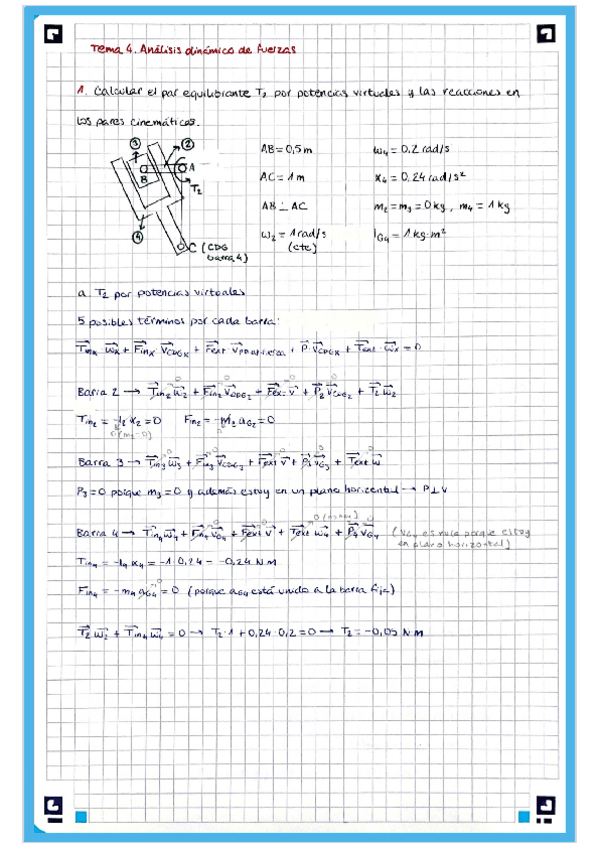 Tema 4. Análisis dinámico de fuerzas
1. Calcular el par equilibrante T₂ por potencias virtuales y las reacciones en
los pares cinemáticos.
③ ② B A T₂ ④ C (CDG barra 4)
AB = 0,5 m
AC = 1 m
AB ⊥ AC
ω₂ = 1 rad/s (cte)
ω₄ = 0,2 rad/s
α₄ = 0,24 rad/s²
m₂ = m₃ = 0 kg, m₄ = 1 kg
I_G₄ = 1 kg·m²
a. T₂ por potencias virtuales
5 posibles términos por cada barra:
Tinₓ·ωₓ + Finₓ·V_CDGₓ + Fext·V + P·V_CDGₓ + Text·ωₓ = 0
Barra 2 → Tin₂ω₂ + Fin₂V_CDG₂ + Fext V + P₂V_CDG₂ + T₂ω₂
Tin₂ = -I₂α₂ = 0 Fin₂ = -m₂a_G₂ = 0
0 (m₂=0)
Barra 3 → Tin₃ω₃ + Fin₃V_CDG₃ + Fext V + P₃V_G₃ + Text ω
P₃ = 0 porque m₃ = 0 y además estoy en un plano horizontal → P ⊥ V
Barra 4 → Tin₄ω₄ + Fin₄V_G₄ + Fext V + Text ω₄ + P₄V_G₄ (V_G₄ es nula porque estoy
en plano horizontal)
Tin₄ = -I₄α₄ = -1·0,24 = -0,24 N m
Fin₄ = -m₄a_G₄ = 0 (porque a_G₄ está unido a la barra fija)
T₂ω₂ + Tin₄ω₄ = 0 → T₂·1 + 0,24·0,2 = 0 → T₂ = -0,05 N m